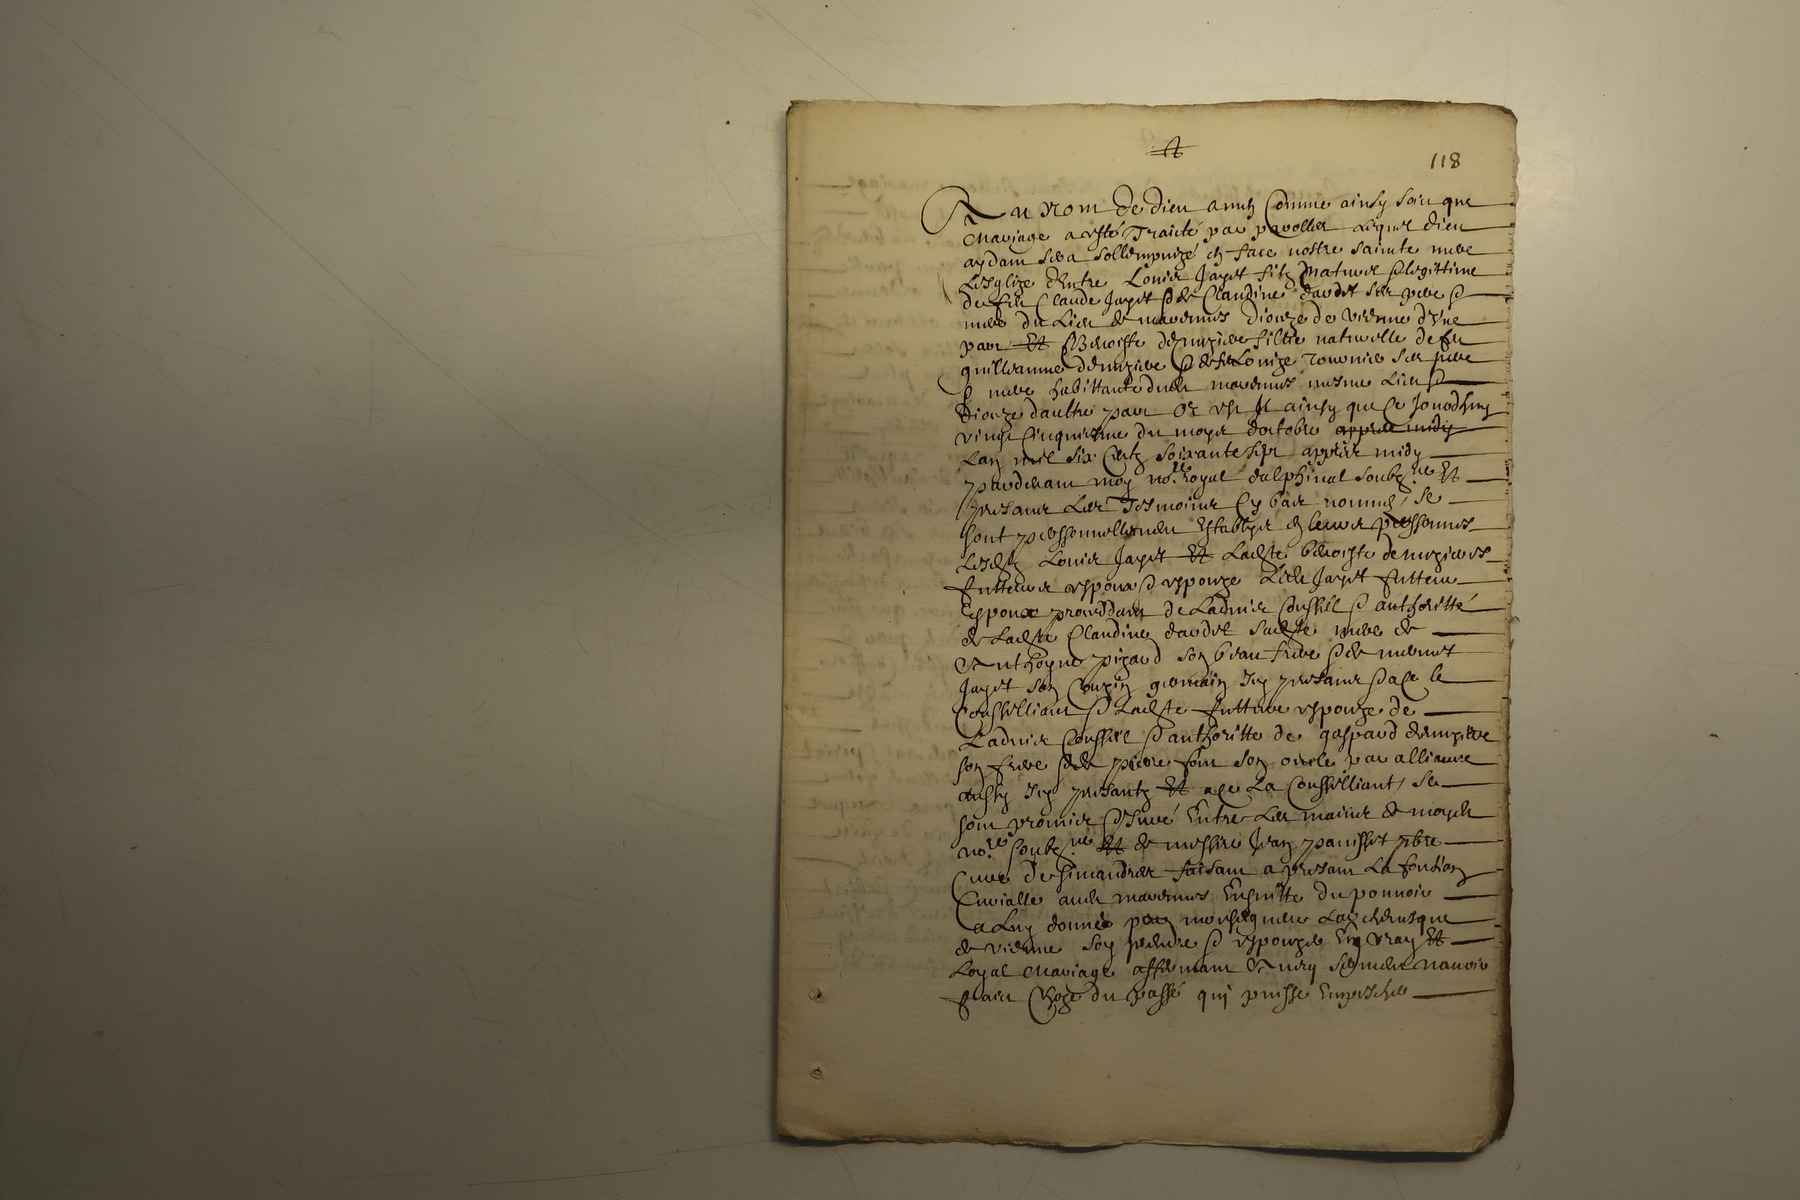 118
Au Nom de Dieu amen Comme ainsy soit que
Mariage a esté Traicté par parolles Lequel dieu
aydant sera sollempnizé en face nostre saincte mere
Lesglize Entre Louis Jayet filz Naturel & legittime
de feu Claude Jayet & de Claudine daudet ses pere &
mere du Lieu de marennes dioceze de vienne dUne
part Et Benoiste demeziere fillie naturelle de feu
guilleaume demeziere & de feu Louize ses pere
& mere habittante dudit marennes mesme Lieu &
dioceze daultre part Or est Il ainsy que Ce Jourdhuy
vingt Cinquiesme du moys doctobre appres midy
Lan mil six Centz soixante sept appres midy
pardevant moy no.re Royal dalphinal soubz.né Et
presantz Les Tesmoins Cy bas nommés se
sont personnellement Establys en leurs personnes
Lesditz Louis Jayet Et Ladite benoiste demezieres
futteurs espoux & espouze Ledit Jayet futteur
Espoux proceddant de Ladvis Conseil & authoritté
de Ladite Claudine daudet sadite mere de
Anthoyne pizard son beau frere & de
Jayet son Couzin germain Icy presantz & a ce le
Conseilliant & Ladite futture espouze de
Ladvis Conseil & authoritte de gaspard demeziere
son frere & de pierre son oncle par alliance
aussy Icy presantz Et a ce La Conseilliant, se
sont promis & Juré Entre Les mains de moydit
no.re soubz.né Et de messire Jean pbre
Curé de simandres faisant a presant La fonction
Curialle audit marennes Ensuitte du pouvoir
a Luy donné par monseigneur Larchevesque
de vienne soy prendre & espouzer En vray Et
Loyal Mariage affirmant navoir
faict Choze du passé quy puisse Empescher